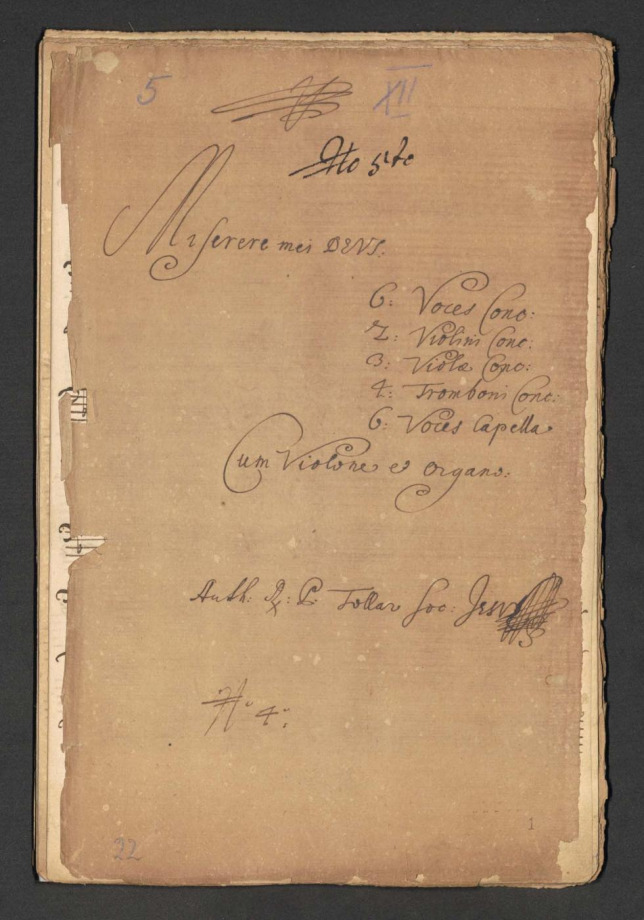 5 XII
No 5te
Miserere mei DEUS:
6: Voces Conc:
2: Violini Conc:
3: Violæ Conc:
4: Tromboni Conc:
6: Voces Capella
Cum Violone et Organo:
Auth: R: P: Tollar Soc: Jesu
No 4:
22
1